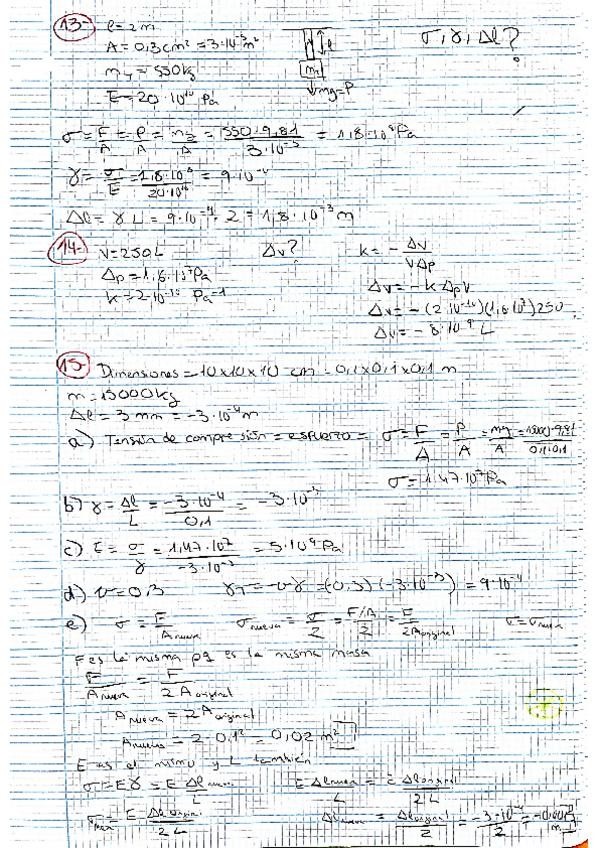 13- l=2m
A=0,3cm²=3·10⁻⁵m²
l
σ, γ, Δl?
m =550kg
m
E=20·10¹⁰ Pa
mg=P
σ=F/A=P/A=mg/A=550·9,81/3·10⁻⁵=1,8·10⁸Pa
γ=σ/E=1,8·10⁸/20·10¹⁰=9·10⁻⁴
Δl=γ L=9·10⁻⁴·2=1,8·10⁻³m
14- V=250L Δv? k=-Δv/VΔp
Δp=1,6·10⁷Pa Δv=-k Δp V
k=2·10⁻¹⁰ Pa⁻¹ Δv=-(2·10⁻¹⁰)(1,6·10⁷)250
Δv=-8·10⁻ L
15- Dimensiones=10x10x10 cm - 0,1x0,1x0,1 m
m=15000kg
Δl=3 mm=-3·10⁻⁴m
a) Tensión de compresión=esfuerzo=σ=F/A=P/A=mg/A=15000·9,81/0,1·0,1
σ=1,47·10⁷Pa
b) γ=Δl/L=-3·10⁻⁴/0,1=-3·10⁻³
c) E=σ/γ=1,47·10⁷/-3·10⁻³=5·10⁹Pa
d) υ=0,3 γT=-υγ=-(0,3)(-3·10⁻³)=9·10⁻⁴
e) σ=F/Anueva σnueva=σ/2=F/A/2=F/2Aoriginal
F es la misma pq es la misma masa
F/Anueva=F/2Aoriginal
Anueva=2Aoriginal
Anueva=2·0,1²=0,02m²
E es el mismo y L también
σ=Eγ=E Δl/L E Δlnueva/L=E Δloriginal/2L
E Δloriginal/2L Δlnueva=Δloriginal/2=-3·10⁻⁴/2